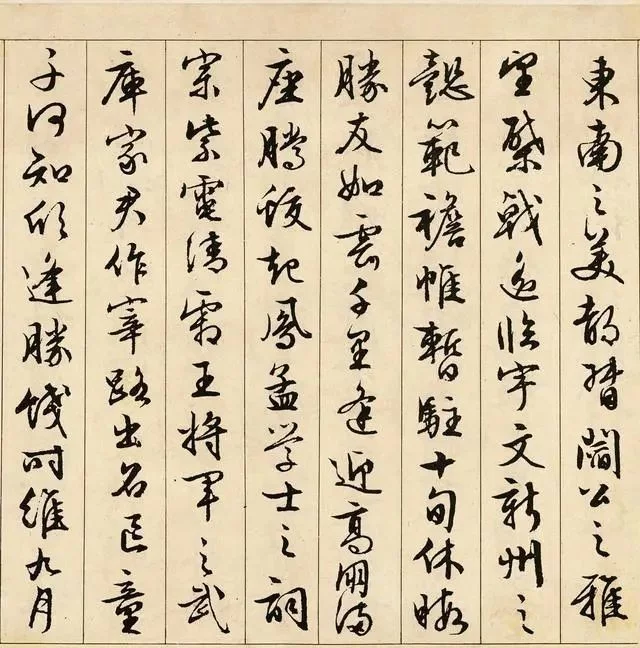 東南之美都督閻公之雅
望棨戟遙臨宇文新州之
懿範襜帷暫駐十旬休暇
勝友如雲千里逢迎高朋滿
座騰蛟起鳳孟學士之詞
宗紫電清霜王將軍之武
庫家君作宰路出名區童
子何知躬逢勝餞時維九月